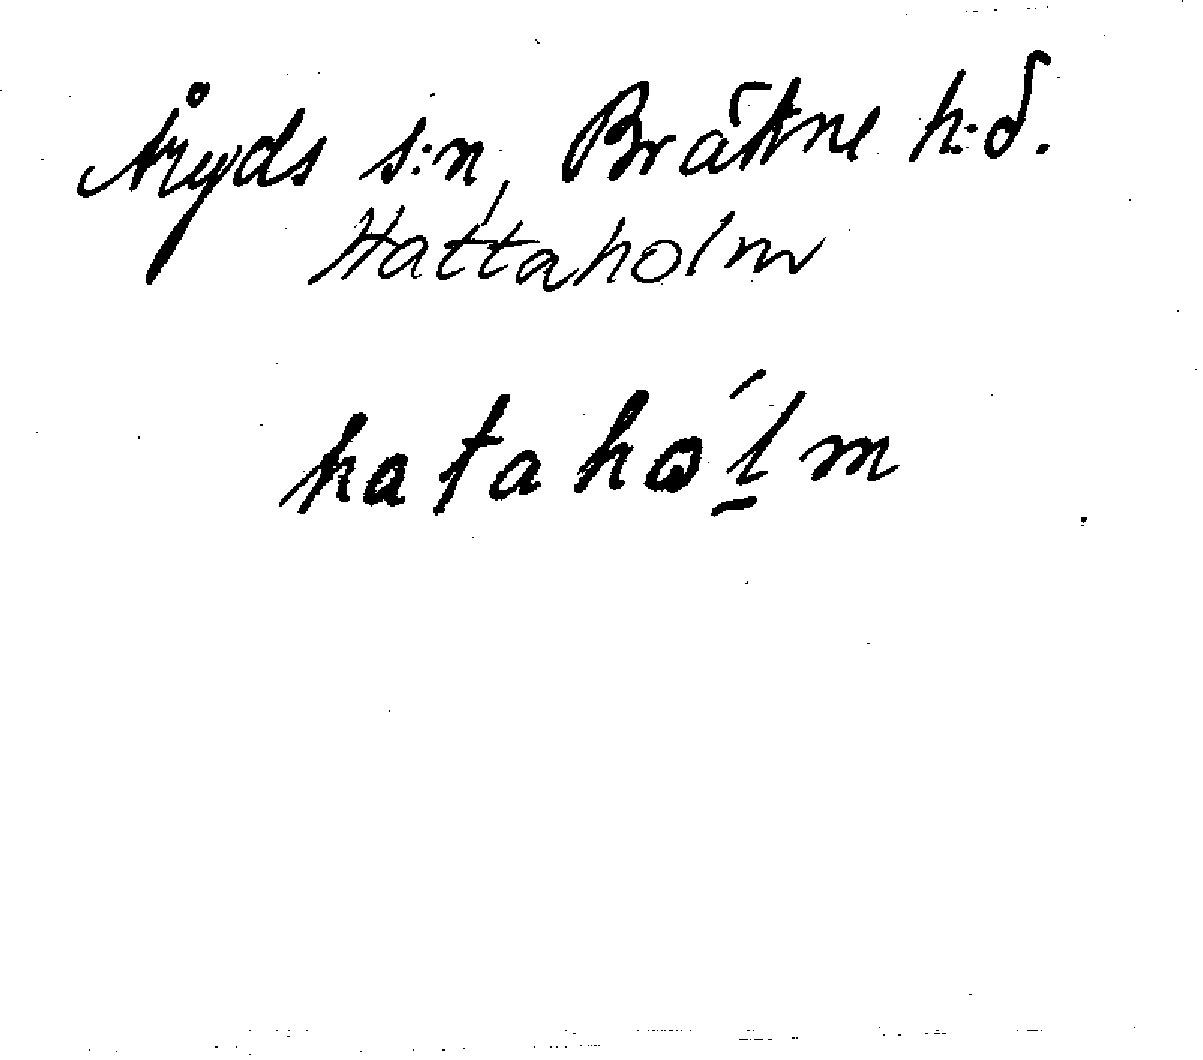 Åryds s:n, Bräkne h:d.
Hattaholm
hataho̱ĺm